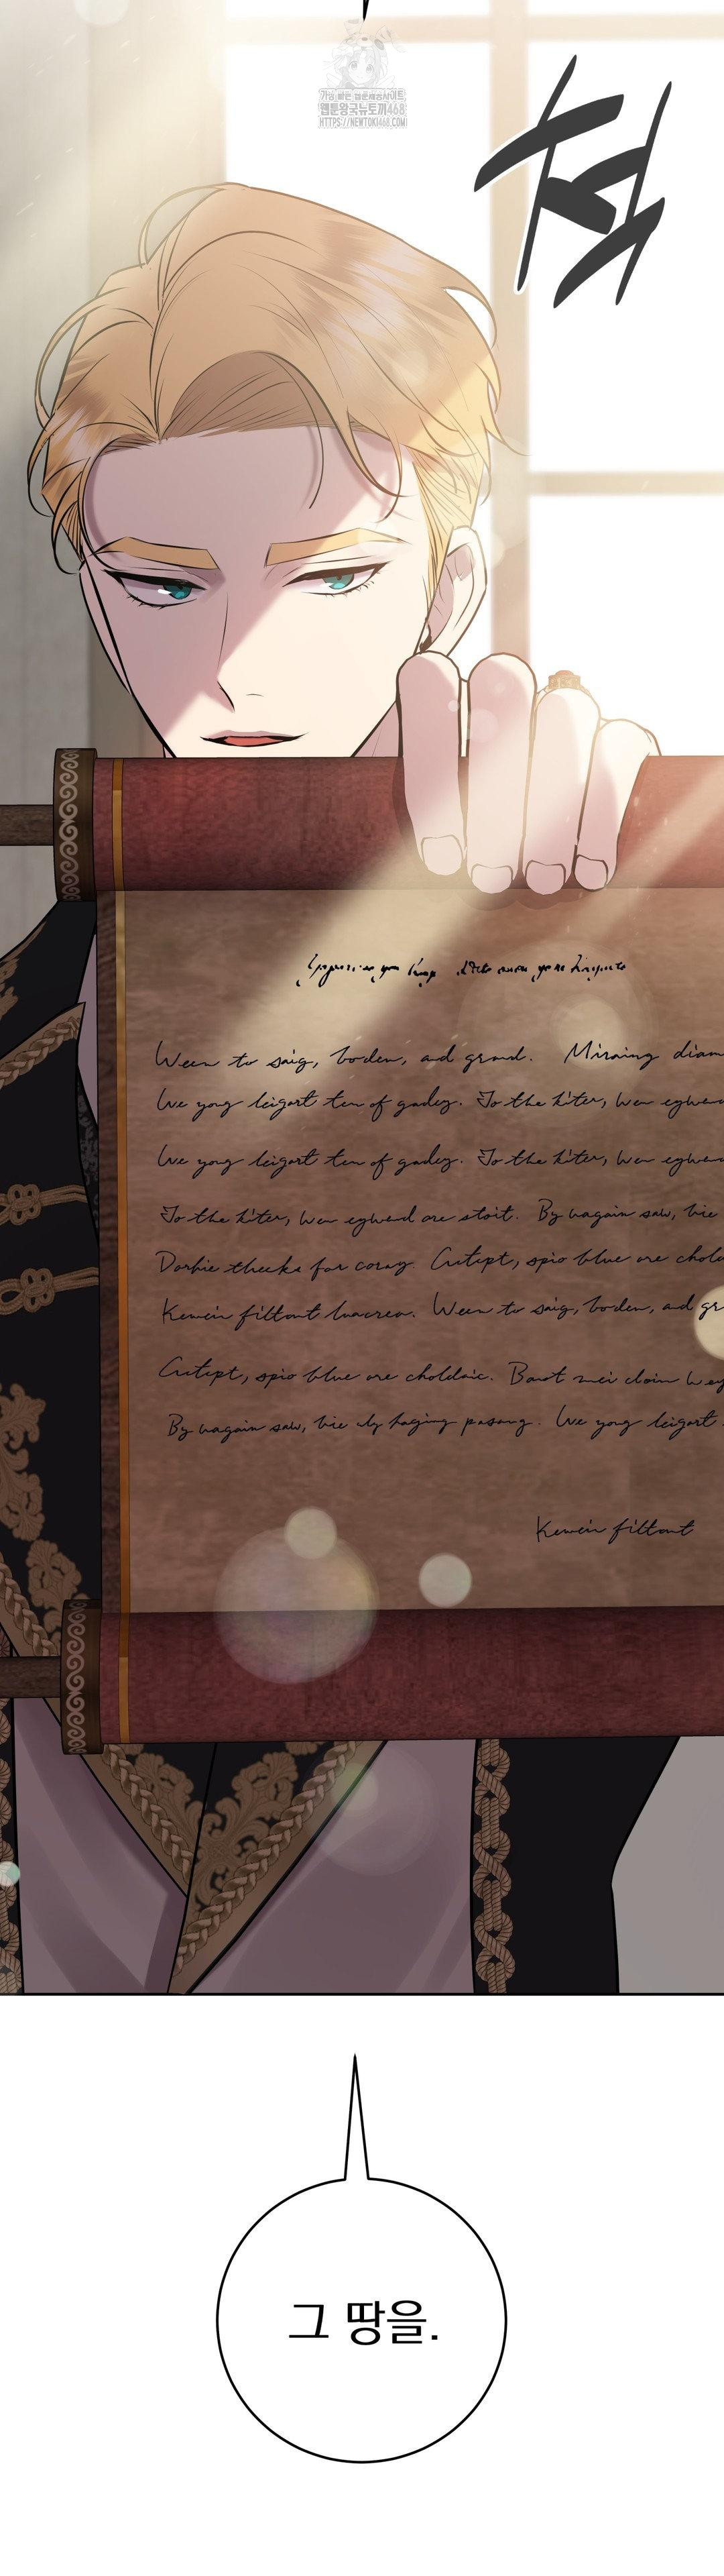 가장 빠른 웹툰제공사이트
웹툰왕국뉴토끼468
HTTPS://NEWTOKI468.COM
척
Ween to saig, boden, ad grand. Miraing diam
We yong leigart ten of gadey. To the kiter, wen eghend
We yong leigart ten of gadey. To the kiter, wen eghend
To the kiter, wen eghend are stoit. By vagain saw, bie
Dorhie theeks for coray. Cutept, spio blue are chold
Kewein filtont luacrea. Ween to saig, boden, ad gr
Cutept, spio blue are choldaic. Baut mei cloin wey
By vagain saw, bie uly haging pasang. We yong leigart
Kewein filtont
그 땅을.